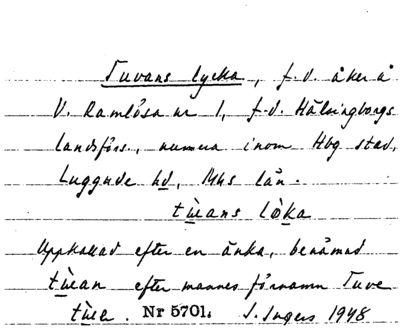 Tuvans lycka, f.d. åker å
V. Ramlösa nr 1, f.d. Hälsingborgs
landsförs., numera inom Hbg stad,
Luggude hd, Mhs län.
tùvans lòka
Uppkallad efter en änka, benämnd
tùvan efter mannes förnamn Tuve
tùve. Nr 5701. I. Ingers 1948